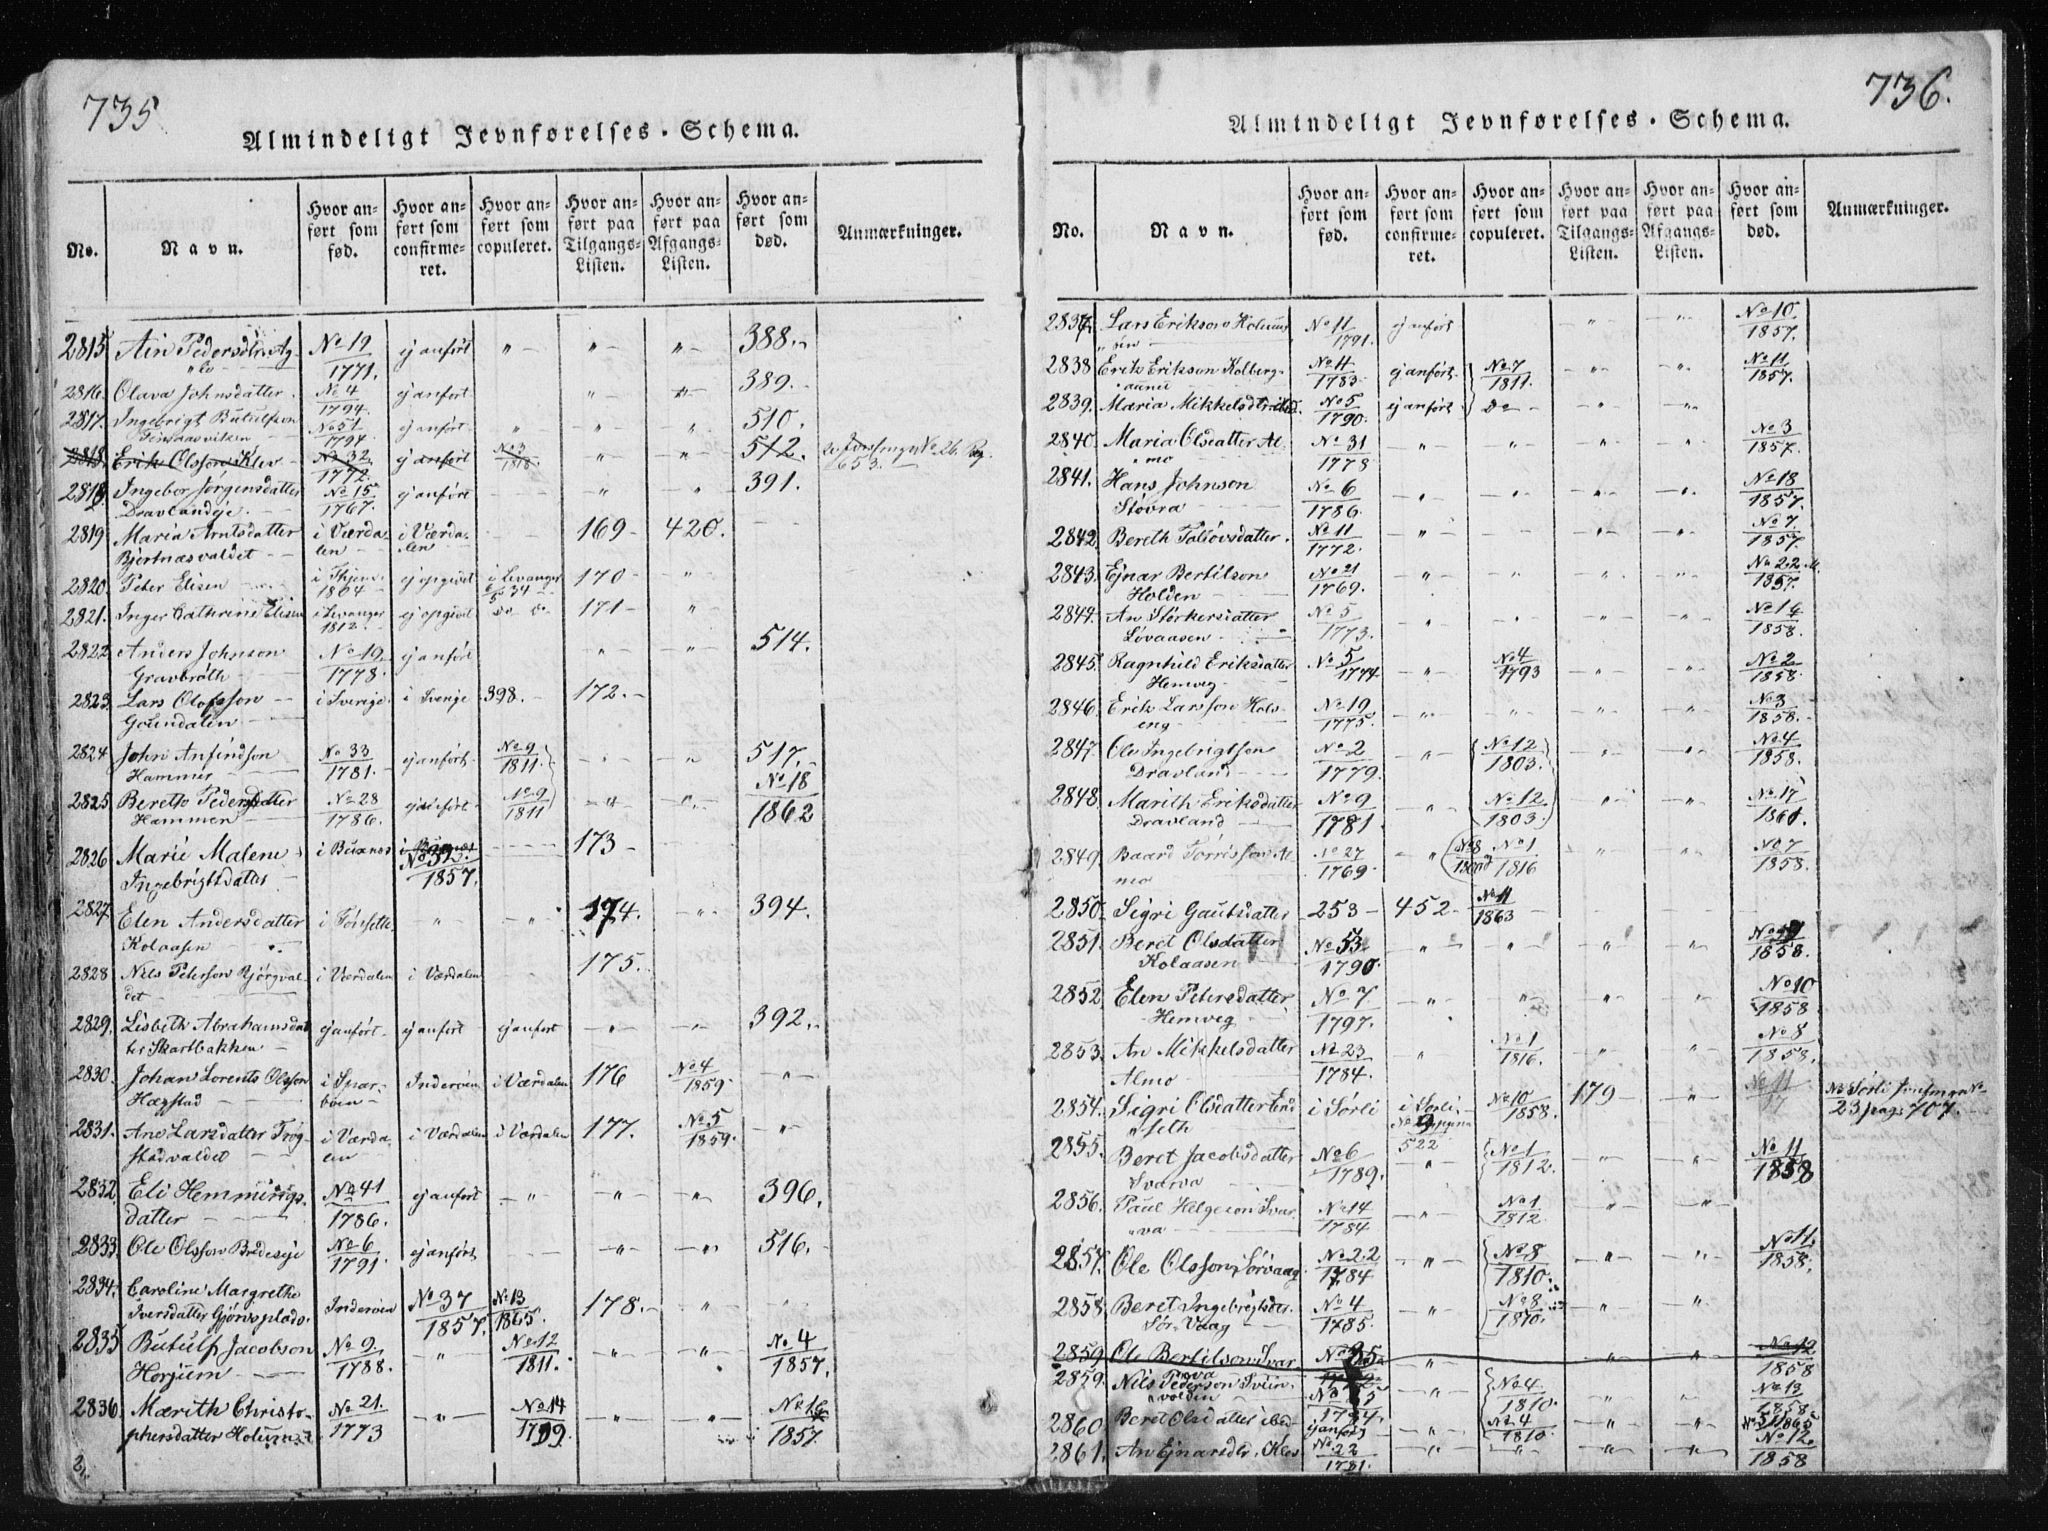 735
Almindeligt Jevnførelses-Schema.
No. Navn. Hvor anført som fød. Hvor anført som confirmeret. Hvor anført som copuleret. Hvor anført paa Tilgangs-Listen. Hvor anført paa Afgangs-Listen. Hvor anført som død. Anmærkninger.
2815 Ain Pedersdtr. No 19 1771. ej anført " " " 388.
2816. Olava Johnsdatter No 4 1794. ej anført " 389.
2817. Ingebrigt Butulfson No 51 1794 ej anført " " " 510.
2818. Erik Olsson Klev No 32 1772. ej anført No 3 1818. " " 512. No 26. Pag. 653.
2818 Ingebor Jørgensdatter Dravlandeje No 15 1767. ej anført " " 391.
2819 Maria Arntsdatter Bjertnæsvaldet i Værdalen i Værdalen 169 420.
2820. Peter Elisen 1804 ej opgivet i Levanger 170 "
2821. Inger Cathrine Elisen i Levanger 1812 ej opgivet do do 171 "
2822 Anders Johnson Gravbråth No 19 1778. ej anført " " 514.
2823. Lars Olofsson i Sverige i Sverige 398. 172.
2824 John Anfindson Hammer No 33 1781. ej anført No 9 1811. " " 517.
2825 Bereth Pedersdatter Hammer No 28 1786. ej anført No 9 1811 " " No 18 1862
2826 Marie Malene Ingebrigtsdatter i Buxnes No 32. 1857. 173
2827. Elen Andersdatter Kolaasen " " 174. " 394.
2828 Nils Peterson Bjørgvaldet i Værdalen i Værdalen 175.
2829. Lisbeth Abrahamsdatter Skartbakken ej anført ej anført ej anført " " 392.
2830. Johan Lorents Olsson Hægstad i Snarboen Inderøen i Værdalen 176 No 4 1859. "
2831. Ane Larsdatter Trøgstadvaldet i Værdalen i Værdalen i Værdalen 177. No 5 1859. "
2832 Eli Hemmingsdatter No 41 1786. ej anført " " " 396.
2833. Ole Olsson Bredeseje No 6 1791 ej anført " " 516.
2834. Caroline Margrethe Iversdatter Gjørvsplads. Inderøen No 37 1857. No 13 1865. 178. " "
2835 Butulf Jacobson Horjem No 9. 1788. " No 12 1811. " " No 4 1857.
2836 Mærith Christophersdatter Holum No 21. 1773 " No 14 1799. " " No 16 1857.
736.
Almindeligt Jevnførelses-Schema.
No. Navn. Hvor anført som fød. Hvor anført som confirmeret. Hvor anført som copuleret. Hvor anført paa Tilgangs-Listen. Hvor anført paa Afgangs-Listen. Hvor anført som død. Anmærkninger.
2837. Lars Erikson No 11 1791. ej anført " " No 10 1857.
2838 Erik Erikson Kolbergaunet No 4 1783 ej anført No 7 1811. " " No 11 1857.
2839. Maria Mikkelsdtr. No 5 1790. ej anført Do " "
2840. Maria Olsdatter Almo No 31 1778 " " " " No 3 1857.
2841. Hans Johnson Støvra No 6 1786. " " " " No 18 1857.
2842. Bereth Toløvsdatter No 11 1772. " " " " No 7. 1857.
2843. Ejnar Bertilson Holden No 21 1769. " " " " No 22 1857.
2844. An Størkersdatter Løvaasen No 5 1773. " " " " No 14 1858.
2845. Ragnhild Eriksdatter Hemveg No 5 1774. " No 4 1793 " " No 2 1858.
2846. Erik Larsson Holseng No 19 1775. " " " " No 3 1858.
2847. Ole Ingebrigtsson Dravland No 2 1779. " No 12 1803. " " No 4 1858.
2848. Marith Eriksdatter Dravland No 9 1781. " No 12. 1803. " " No 17 1860.
2849. Baard Torrisson Almo No 27 1769. " No 8 No 1 1816 " " No 7 1858.
2850. Sigri Gautsdatter 253 452 No 11 1863
2851. Beret Olsdatter Kolaasen No 53. 1790. " " " " 1858.
2852 Elen Petersdatter Hemveg No 7 1797. " " " " No 10 1858
2853. An Mikkelsdatter Almo No 23 1784. " No 1 1816. " " No 8 1858.
2854. Sigri Olsdatter i Sørli i Sørli. No 10 1858. 179 " No 11 23 pag. 707.
2855. Beret Jacobsdatter Svarva No 6 1789. 522 " No 1 1812. " " No 11 1858
2856. Paul Helgeson Svarva No 14 1784 " No 1 1812. " "
2857. Ole Olsson Sørvaag No 22 1784 " No 8 1810. " " No 11. 1858.
2858. Beret Ingebrigtsdtr. Sør-Vaag No 4 1785. " No 8 1810. " "
2859. Ole Bertilson Svarva No 35 " " " No 12 1858
2859. Nils Pederson 1784. " No 4 1810. " " No 13 1858.
2860 Beret Olsdatter ej anført " No 4 1810. " " 1865
2861. An Ejnarsdtr. No 22 1781. " " " " No 12. 1858